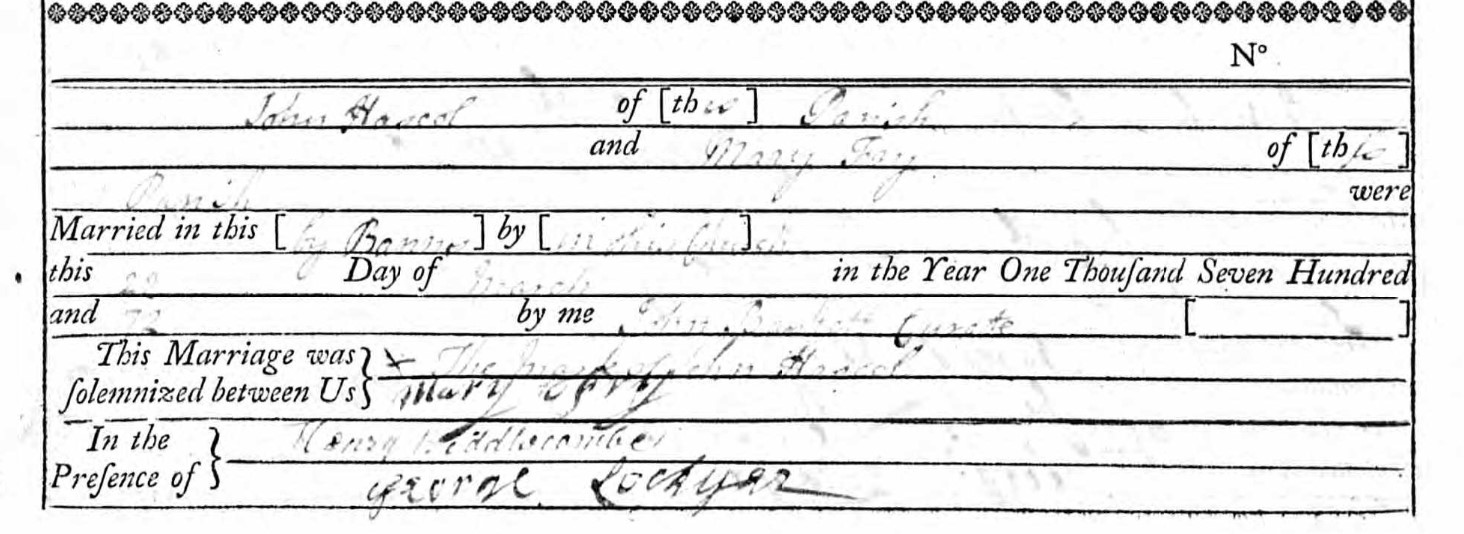 N°
John Hascol of [this] Parish
and Mary Fry of [this]
Parish were
Married in this [by Banns] by [in this Church]
this 22 Day of March in the Year One Thouſand Seven Hundred
and 72 by me John Curate [ ]
This Marriage was } × The mark of John Hascol
ſolemnized between Us } Mary Fry
In the } Henry
Preſence of } George Lockyer